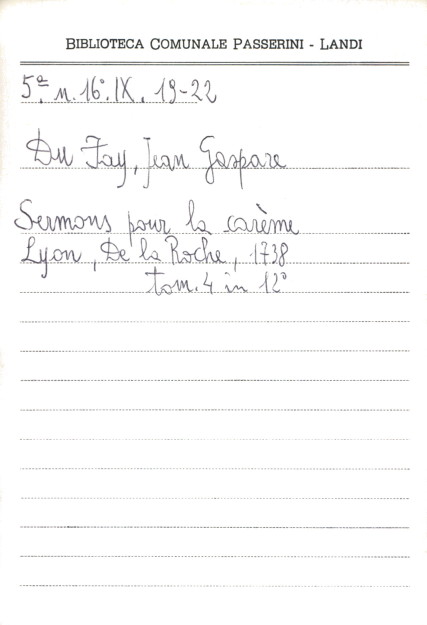 BIBLIOTECA COMUNALE PASSERINI - LANDI
5ª n. 16°. IX. 19-22
Du Fay, Jean Gaspare
Sermons pour la carème
Lyon, De la Roche, 1738
tom. 4 in 12°